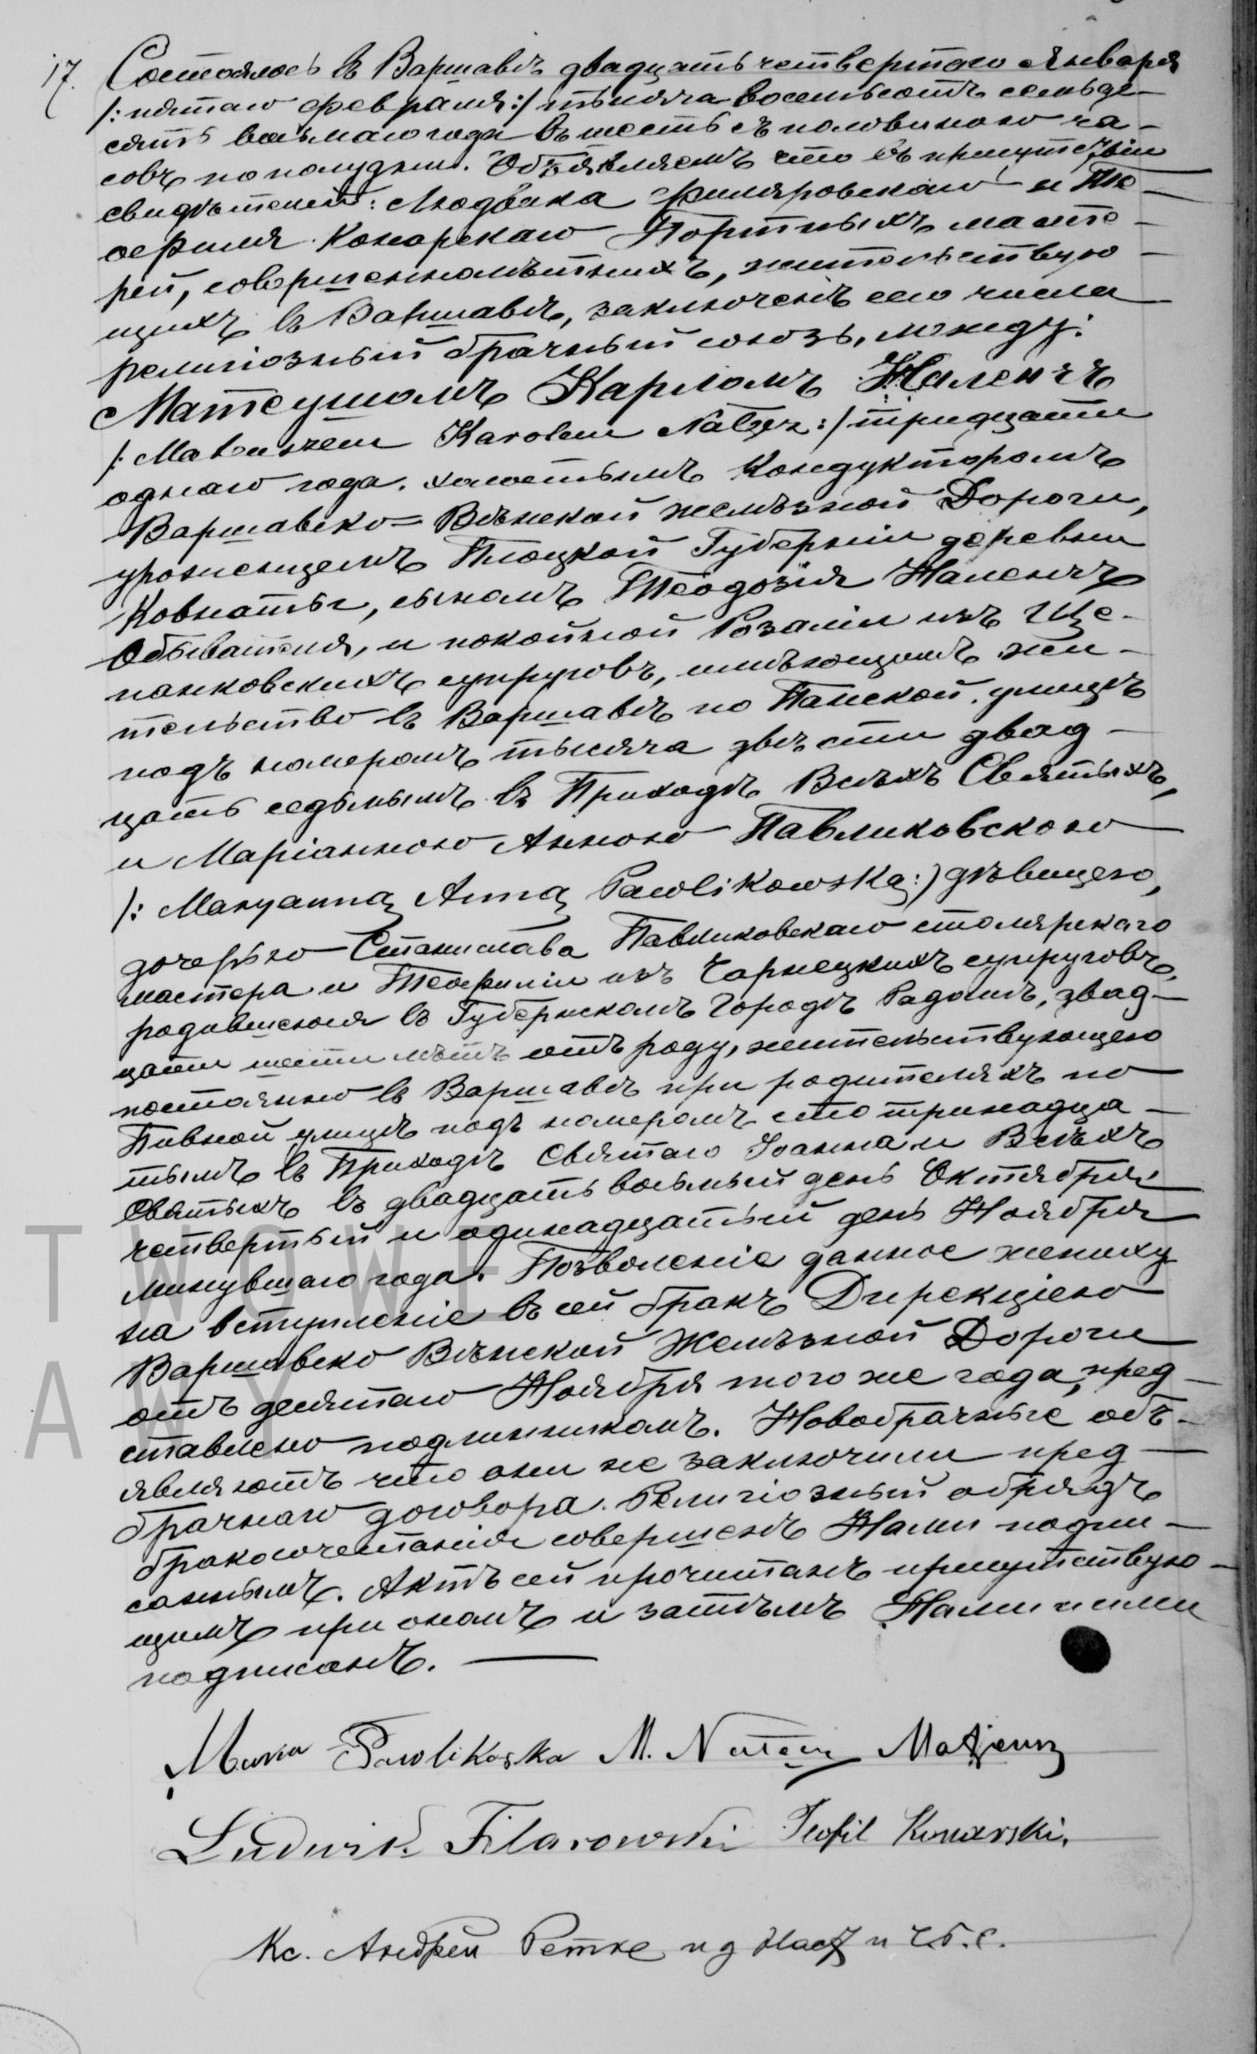 17. Состоялось въ Варшавѣ двадцать четвертого Января
/: пятаго Февраля :/ тысяча восемьсотъ семьде-
сятъ восьмаго года въ шесть съ половиною ча-
совъ по полудни. Объявляемъ что въ присутствіи
свидѣтелей: Людвика Филяровскаго и Те-
офиля Конарскаго Портныхъ масте-
рей, совершеннолѣтнихъ, жительствую-
щихъ въ Варшавѣ, заключенъ сего числа
религіозный брачный союзъ, между:
Матеушомъ Карломъ Наленчъ
/: Mateuszem Karolem Nałęcz :/ тридцати
однаго года, холостымъ Кондукторомъ
Варшавско=Вѣнской желѣзной Дороги,
урожeнцемъ Плоцкой Губерніи деревни
Ковнаты, сыномъ Теодозія Наленчъ
Обывателя, и покойной Розаліи изъ Ще-
панковскихъ супруговъ, имѣющимъ жи-
тельство въ Варшавѣ по Панской улицѣ
подъ номеромъ тысяча двѣсти двад-
цать седьмымъ въ Приходѣ Всѣхъ Святыхъ,
и Маріанною Анною Павликовскою
/: Maryanną Anną Pawlikowską :/ дѣвицею,
дочерью Станислава Павликовскаго столярскаго
мастера и Теофиліи изъ Чарнецкихъ супруговъ,
родившеюся въ Губернскомъ Городѣ Радомѣ, двад-
цати шести лѣтъ отъ роду, жительствующею
постоянно въ Варшавѣ при родителяхъ по
Пивной улицѣ подъ номеромъ сто тринадца-
тымъ въ Приходѣ Святаго Іоанна и Всѣхъ
Святыхъ въ двадцать восьмый день Октября
четвертый и одинадцатый день Ноября
минувшаго года. Позволеніе данное жениху
на вступленіе въ сей бракъ Дирекціею
Варшавско Вѣнской Желѣзной Дороги
отъ десятаго Ноября того же года, пред-
ставлено подлинникомъ. Новобрачные объ-
являютъ что они не заключили пред-
брачнаго договора. Религіозный обрядъ
бракосочетанія совершенъ Нами подпи-
саннымъ. Актъ сей прочитанъ присутствую-
щимъ при ономъ и затѣмъ Нами и ими
подписанъ.
Marya Pawlikoska M. Nałęcz Mateusz
Ludwik Filarowski Teofil Konarski
Кс. Андрей Ретке и д Наст и Ч.Г.С.
TWOWE
AWY